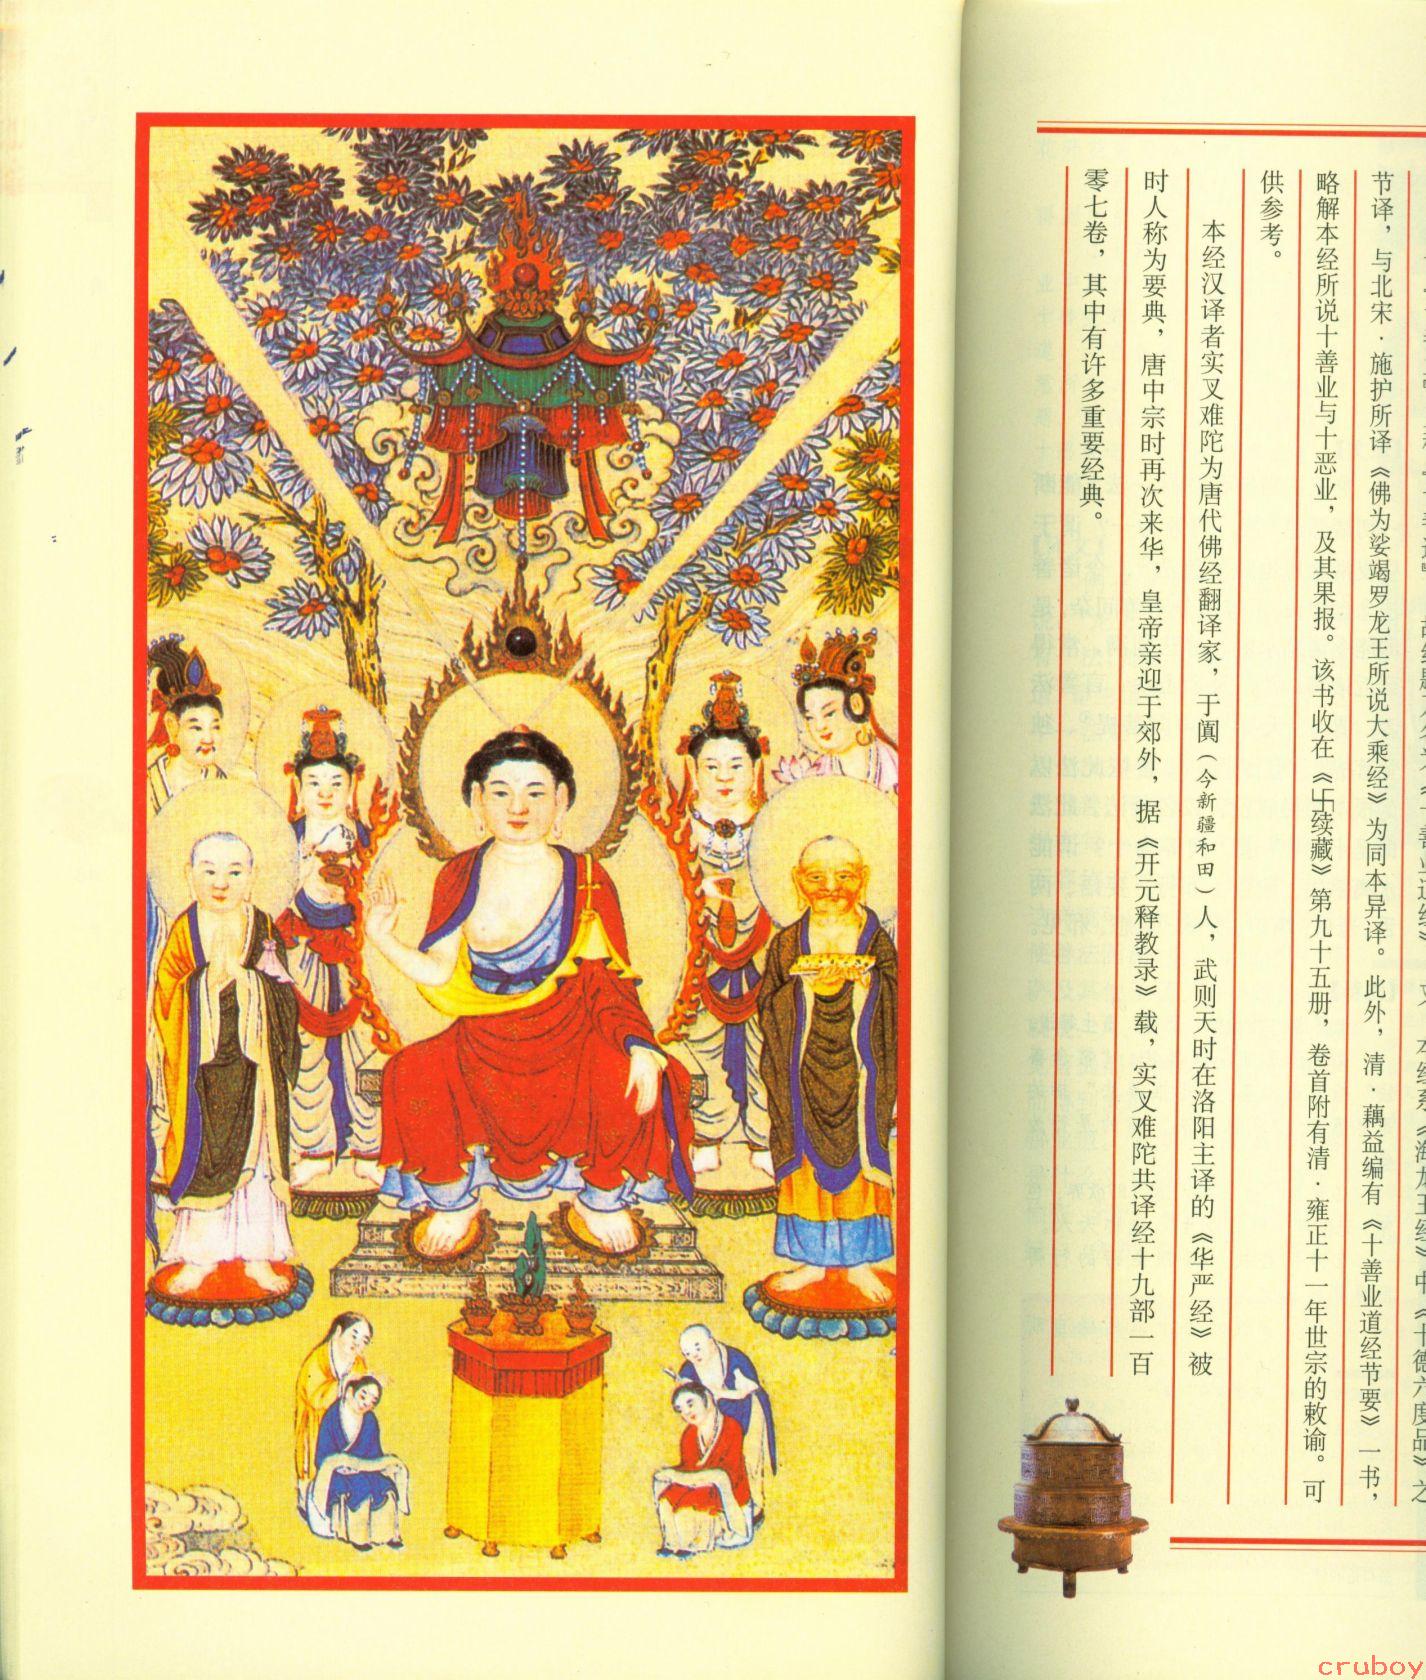 节译，与北宋·施护所译《佛为娑竭罗龙王所说大乘经》为同本异译。此外，清·藕益编有《十善业道经节要》一书，
略解本经所说十善业与十恶业，及其果报。该书收在《卍续藏》第九十五册，卷首附有清·雍正十一年世宗的敕谕。可
供参考。
本经汉译者实叉难陀为唐代佛经翻译家，于阗（今新疆和田）人，武则天时在洛阳主译的《华严经》被
时人称为要典，唐中宗时再次来华，皇帝亲迎于郊外，据《开元释教录》载，实叉难陀共译经十九部一百
零七卷，其中有许多重要经典。
cruboy